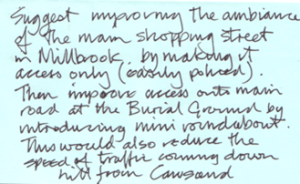 Suggest improving the ambiance
of the main shopping street
in Millbrook by making it
access only (easily policed).
Then improve access onto main
road at the Burial Ground by
introducing mini roundabout.
This would also reduce the
speed of traffic coming down
hill from Cawsand